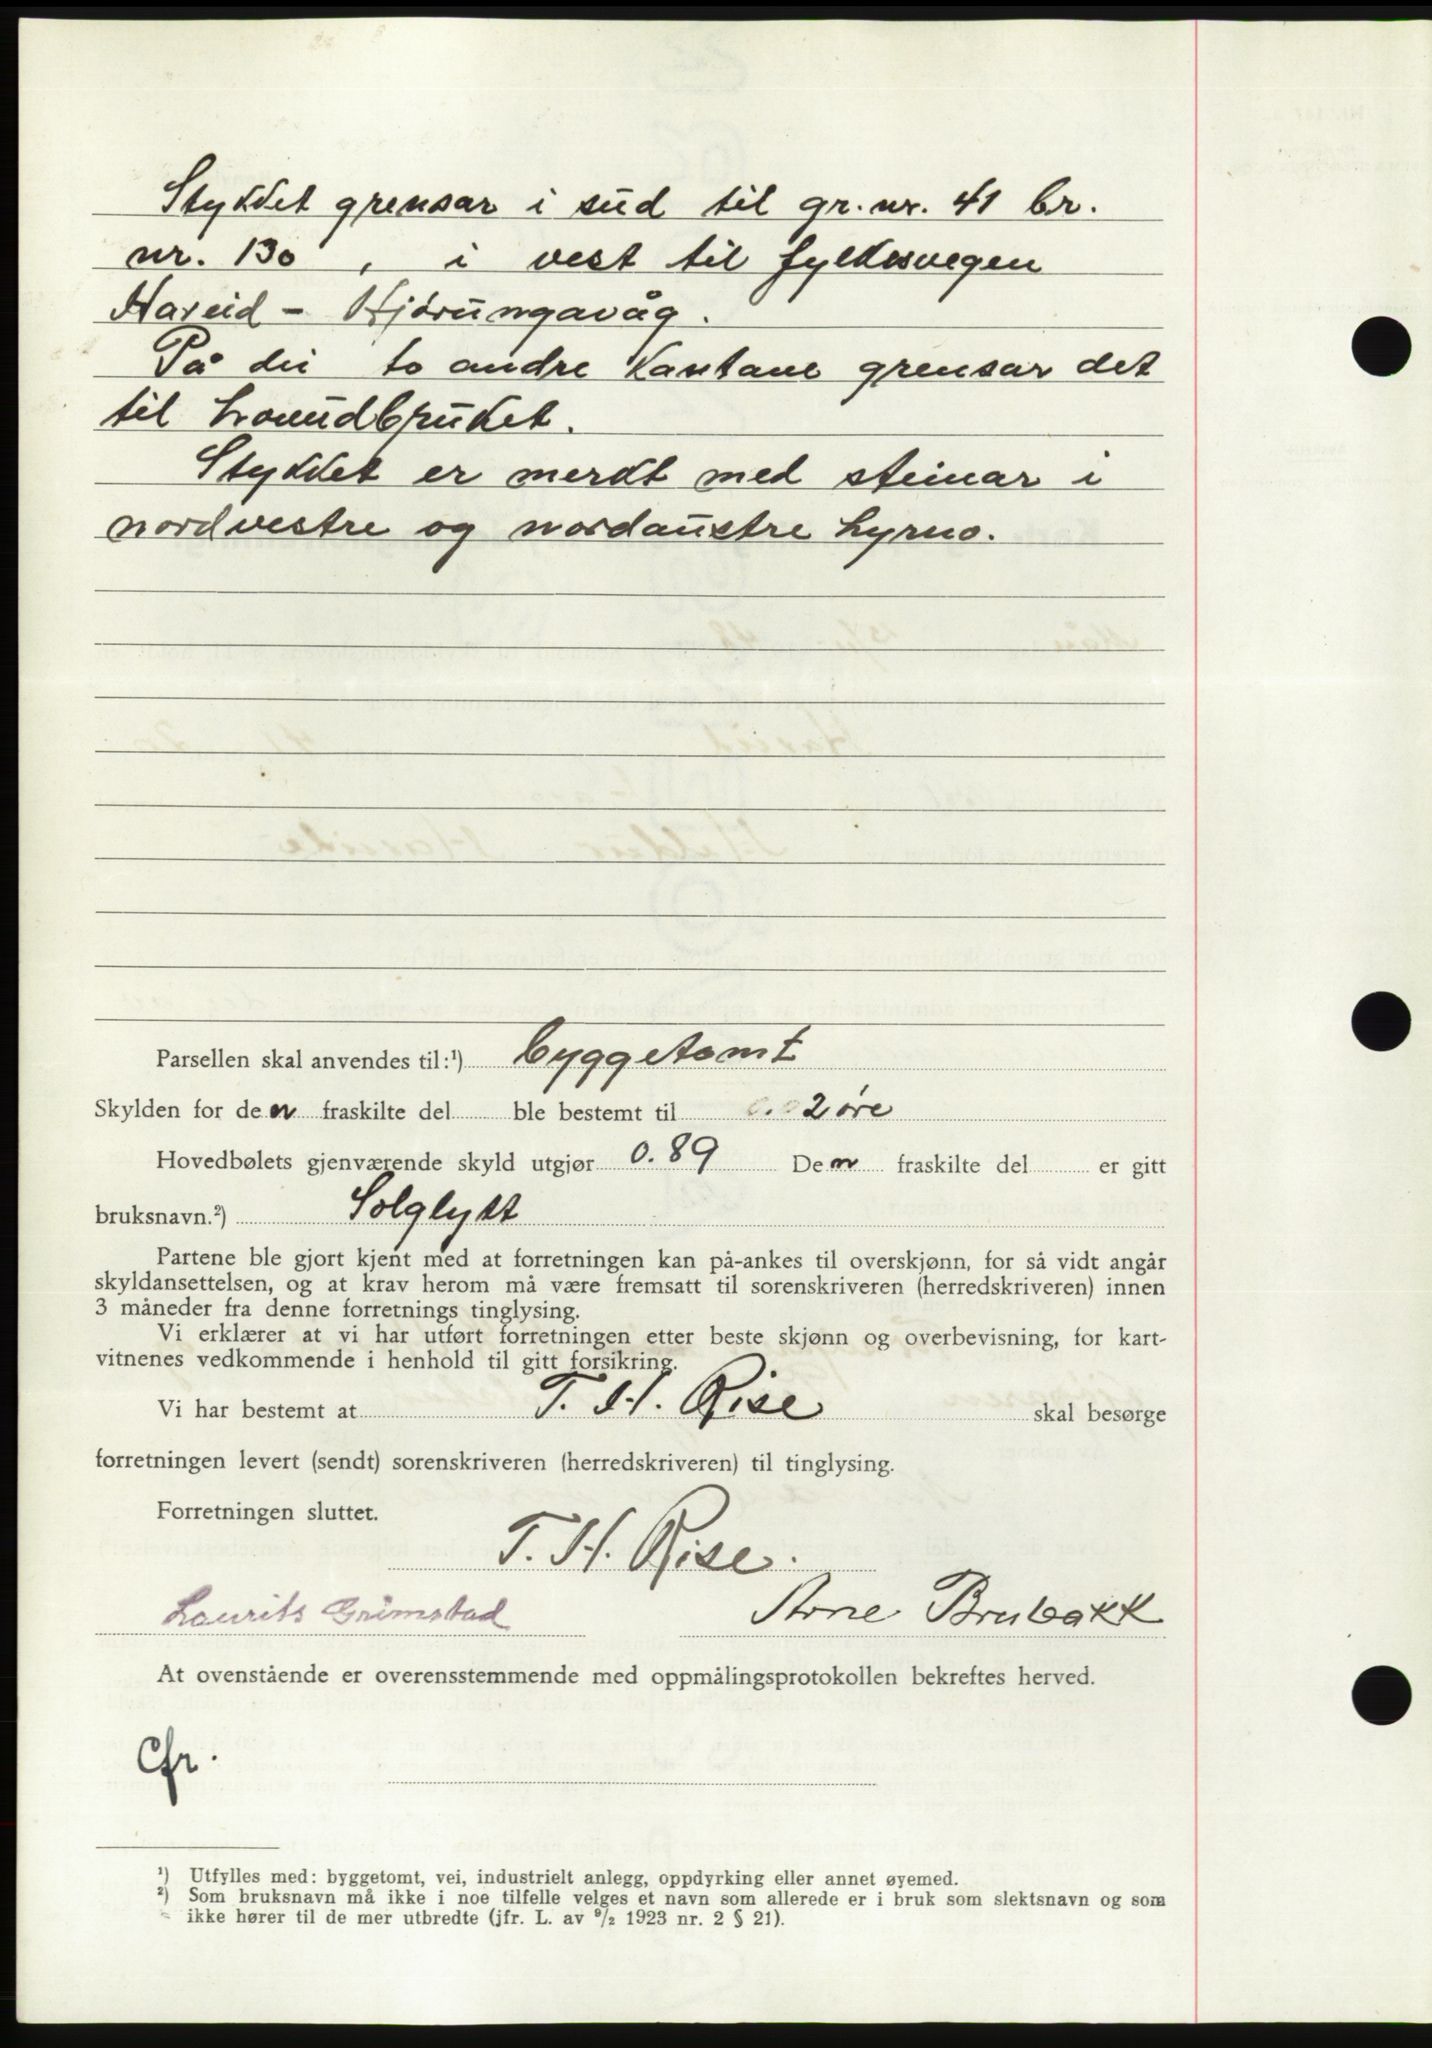 Stykket grensar i sud til gr. nr. 41 br.
nr. 130 , i vest til fylkesvegen
Hareid - Hjørungavåg.
På dei to andre kantane grensar det
til hovudbruket.
Stykket er merkt med steinar i
nordvestre og nordaustre hyrno.
Parsellen skal anvendes til:¹) byggetomt
Skylden for den fraskilte del ble bestemt til 0.02 øre
Hovedbølets gjenværende skyld utgjør 0.89 Den fraskilte del er gitt
bruksnavn.²) Solglytt
Partene ble gjort kjent med at forretningen kan på-ankes til overskjønn, for så vidt angår
skyldansettelsen, og at krav herom må være fremsatt til sorenskriveren (herredskriveren) innen
3 måneder fra denne forretnings tinglysing.
Vi erklærer at vi har utført forretningen etter beste skjønn og overbevisning, for kart-
vitnenes vedkommende i henhold til gitt forsikring.
Vi har bestemt at T. H. Rise skal besørge
forretningen levert (sendt) sorenskriveren (herredskriveren) til tinglysing.
Forretningen sluttet.
T. H. Rise.
Laurits Grimstad Arne Brubakk
At ovenstående er overensstemmende med oppmålingsprotokollen bekreftes herved.
Cfr.
¹) Utfylles med: byggetomt, vei, industrielt anlegg, oppdyrking eller annet øyemed.
²) Som bruksnavn må ikke i noe tilfelle velges et navn som allerede er i bruk som slektsnavn og som
ikke hører til de mer utbredte (jfr. L. av ⁹/₂ 1923 nr. 2 § 21).